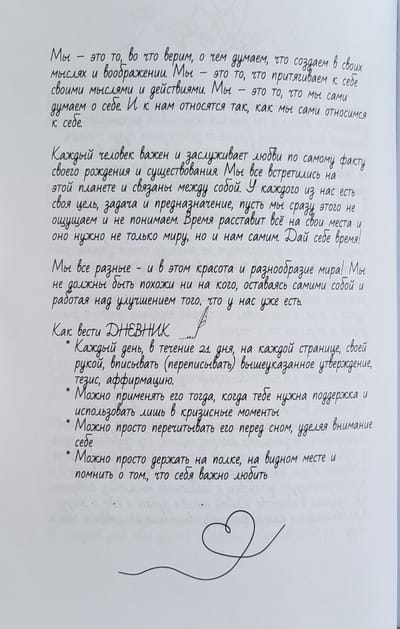 Мы – это то, во что верим, о чем думаем, что создаем в своих
мыслях и воображении. Мы – это то, что притягиваем к себе
своими мыслями и действиями. Мы – это то, что мы сами
думаем о себе. И к нам относятся так, как мы сами относимся
к себе.
Каждый человек важен и заслуживает любви по самому факту
своего рождения и существования. Мы все встретились на
этой планете и связаны между собой. У каждого из нас есть
своя цель, задача и предназначение, пусть мы сразу этого не
ощущаем и не понимаем. Время расставит всё на свои места и
оно нужно не только миру, но и нам самим. Дай себе время!
Мы все разные - и в этом красота и разнообразие мира! Мы
не должны быть похожи ни на кого, оставаясь самими собой и
работая над улучшением того, что у нас уже есть.
Как вести ДНЕВНИК
* Каждый день, в течение 21 дня, на каждой странице, своей
рукой, вписывать (переписывать) вышеуказанное утверждение,
тезис, аффирмацию.
* Можно применять его тогда, когда тебе нужна поддержка и
использовать лишь в кризисные моменты.
* Можно просто перечитывать его перед сном, уделяя внимание
себе
* Можно просто держать на полке, на видном месте и
помнить о том, что себя важно любить